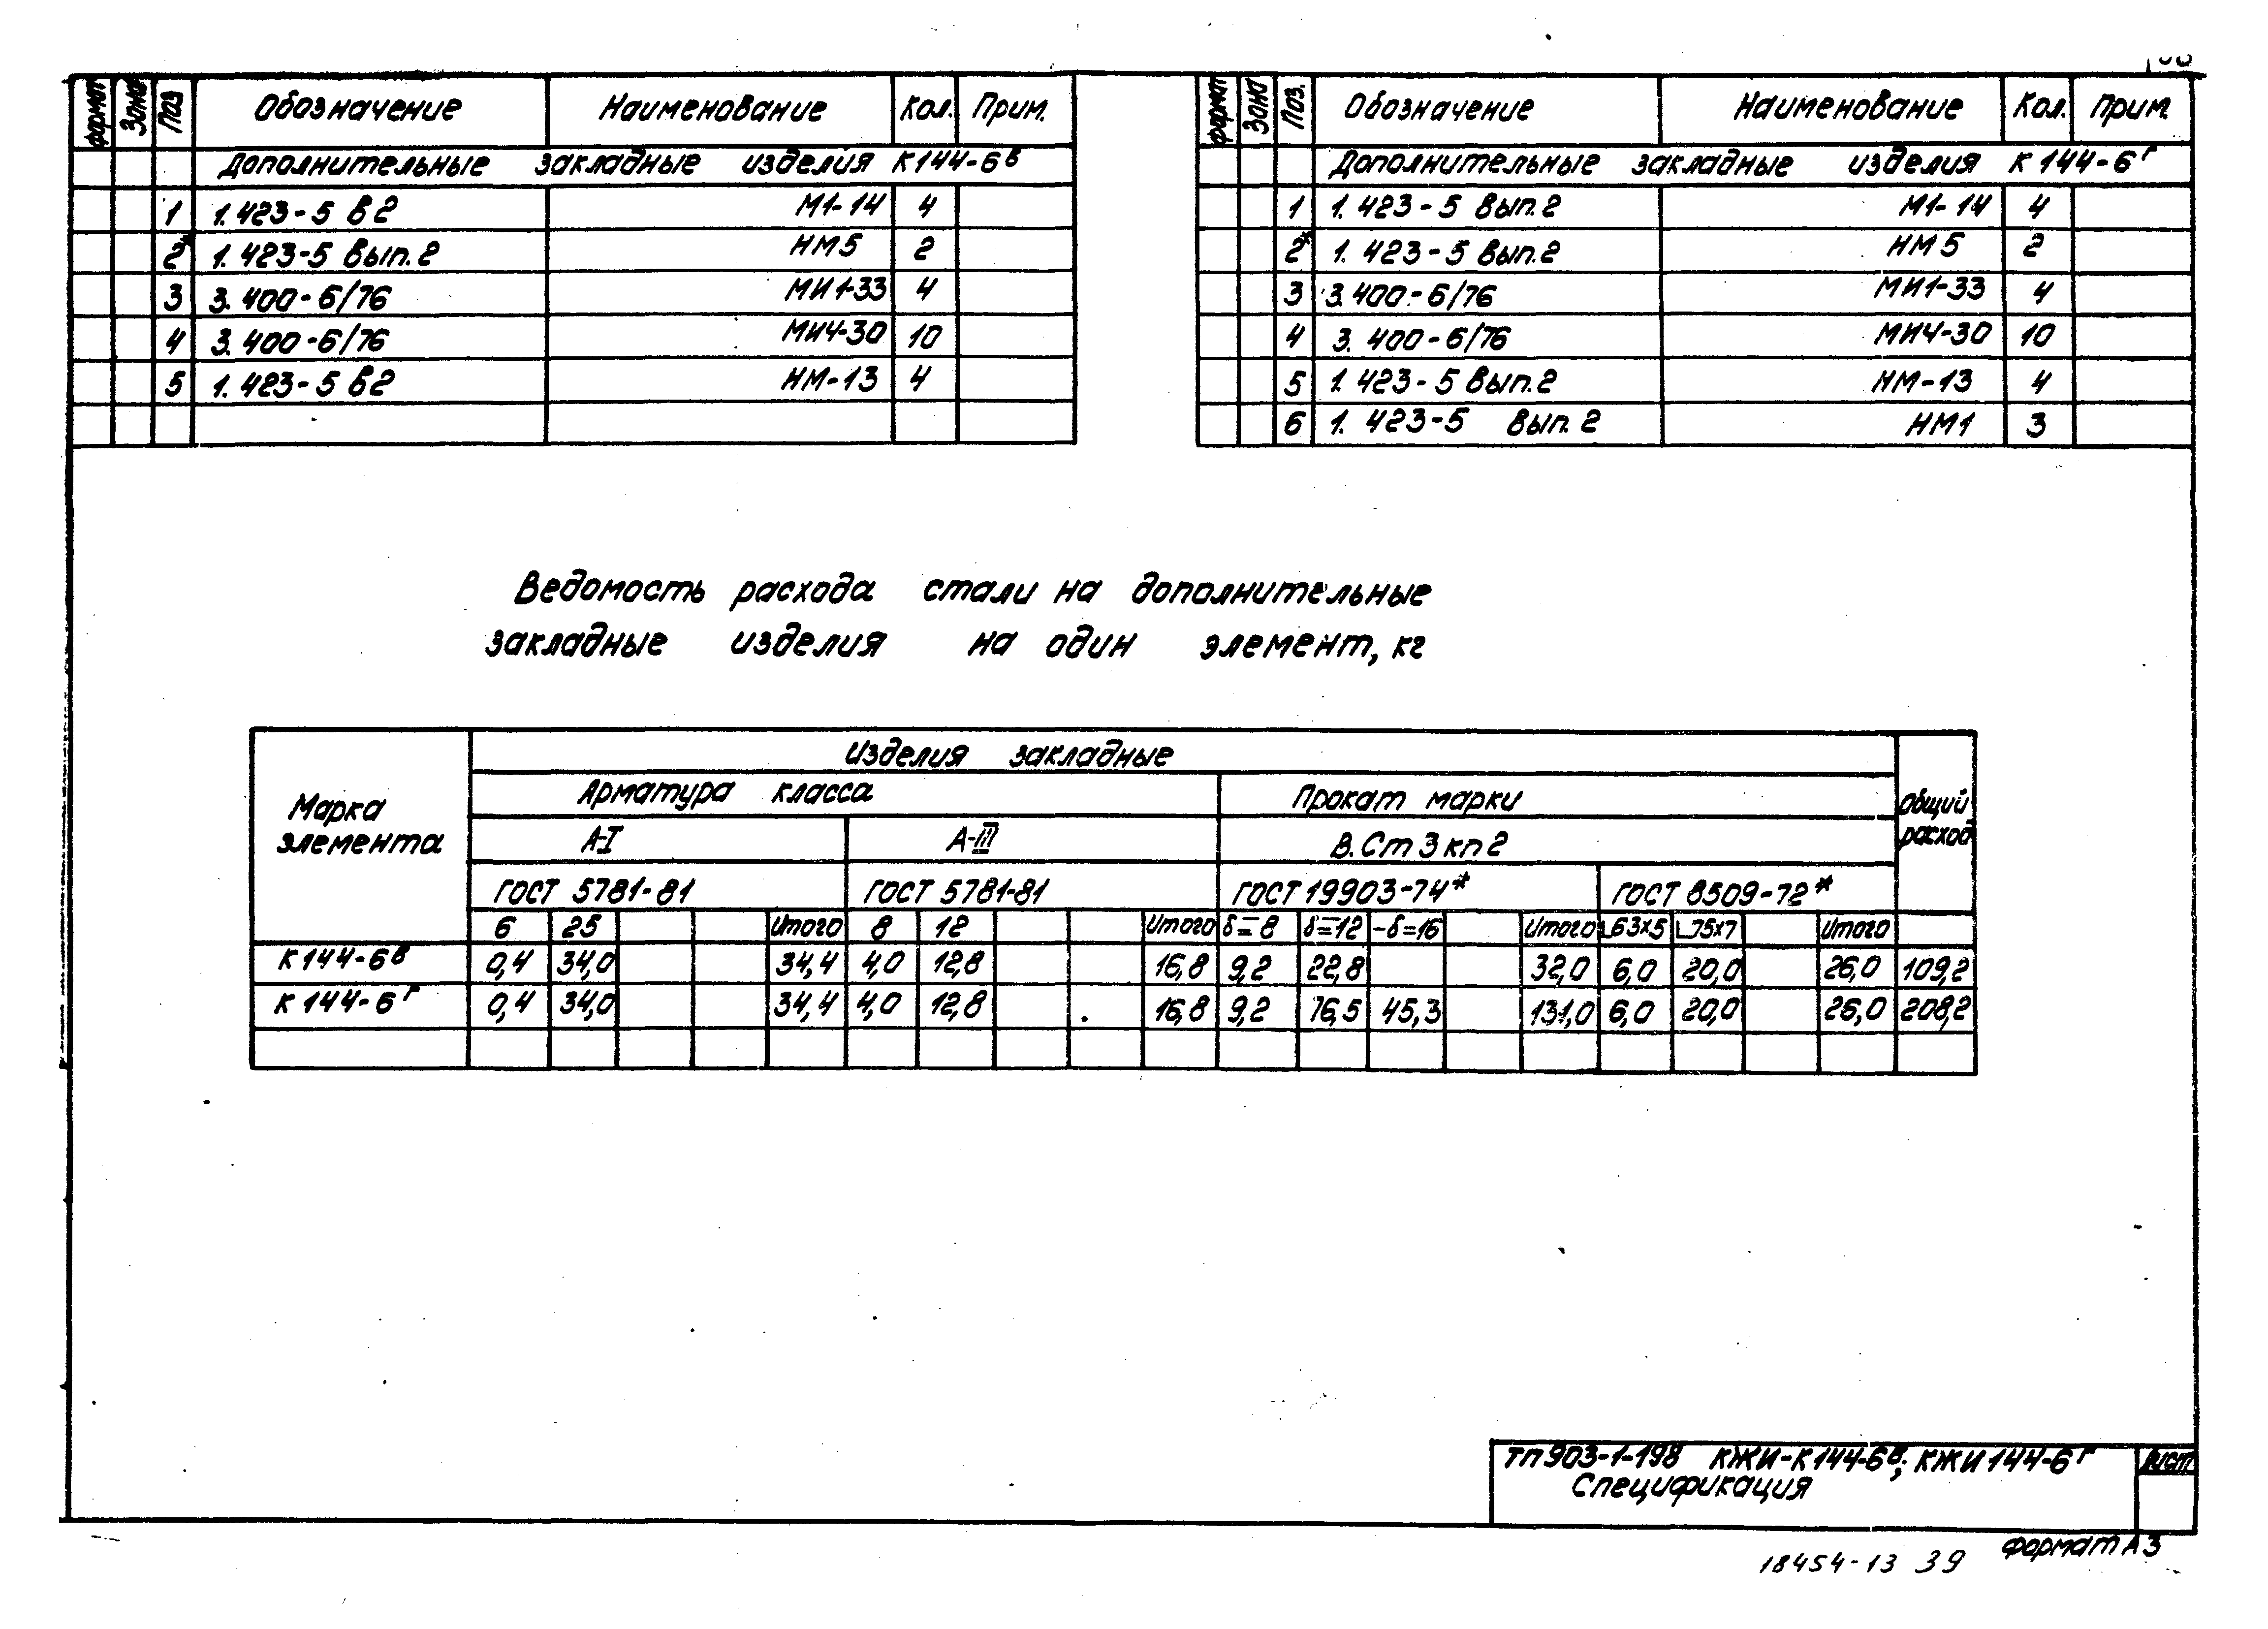 формат Зона Поз Обозначение Наименование Кол. Прим.
Дополнительные закладные изделия К144-6в
1 1.423-5 в2 М1-14 4
2* 1.423-5 вып.2 НМ5 2
3 3.400-6/76 МИ1-33 4
4 3.400-6/76 МИ4-30 10
5 1.423-5 в2 НМ-13 4
формат Зона Поз. Обозначение Наименование Кол. Прим.
Дополнительные закладные изделия К144-6г
1 1.423-5 вып.2 М1-14 4
2* 1.423-5 вып.2 НМ5 2
3 3.400-6/76 МИ1-33 4
4 3.400-6/76 МИ4-30 10
5 1.423-5 вып.2 НМ-13 4
6 1.423-5 вып.2 НМ1 3
Ведомость расхода стали на дополнительные
закладные изделия на один элемент, кг
Марка элемента Изделия закладные Общий расход
Арматура класса Прокат марки
А-I А-III В.Ст3кп2
ГОСТ 5781-81 ГОСТ 5781-81 ГОСТ 19903-74* ГОСТ 8509-72*
6 25 Итого 8 12 Итого δ=8 δ=12 -δ=16 Итого ∟63х5 ∟75х7 Итого
К144-6в 0,4 34,0 34,4 4,0 12,8 16,8 9,2 22,8 32,0 6,0 20,0 26,0 109,2
К144-6г 0,4 34,0 34,4 4,0 12,8 16,8 9,2 76,5 45,3 131,0 6,0 20,0 26,0 208,2
ТП903-1-198 КЖИ-К144-6в; КЖИ144-6г Лист
Спецификация
Формат А3
18454-13 39